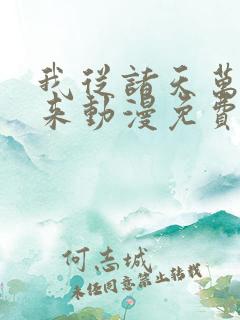 我從諸天萬
來動漫免費
何志城
未经同意禁止转载